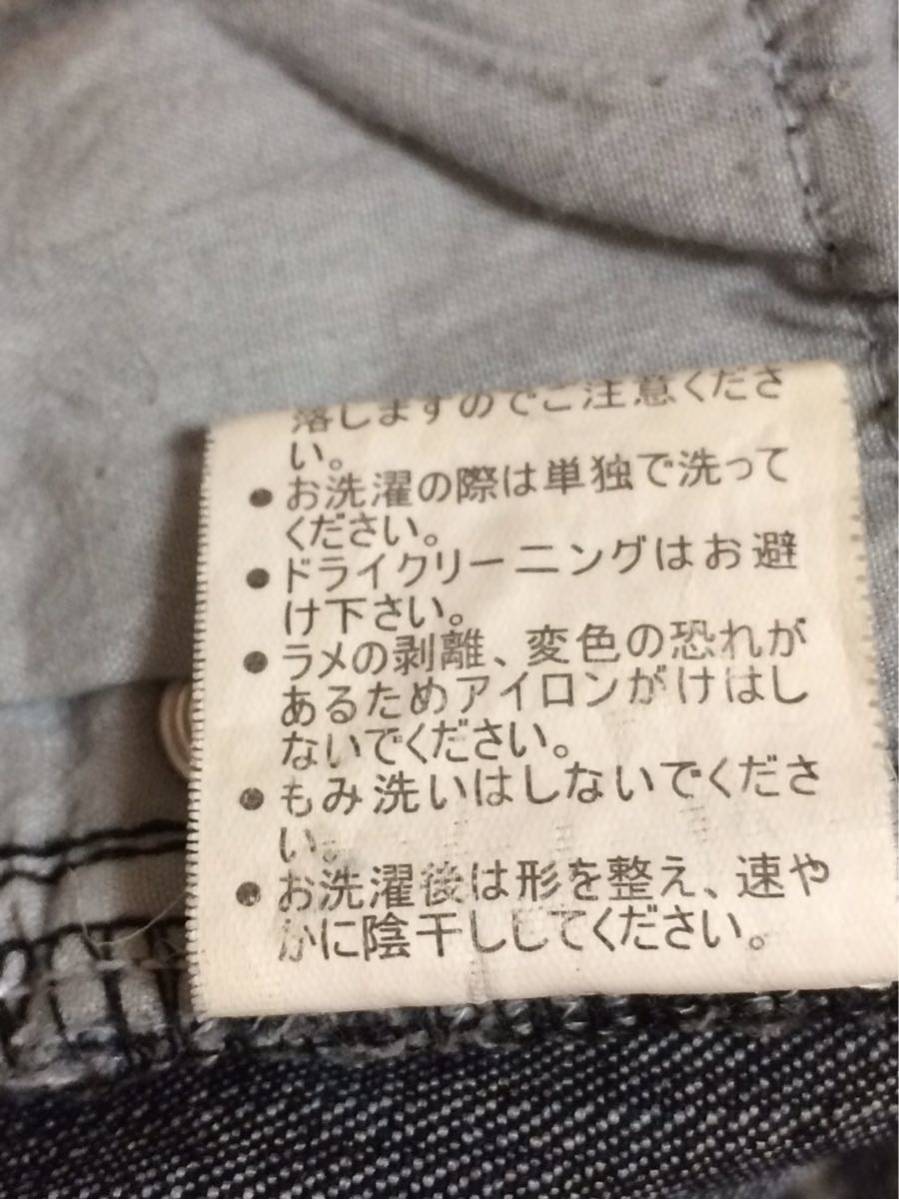 落しますのでご注意くださ
い。
●お洗濯の際は単独で洗って
ください。
●ドライクリーニングはお避
け下さい。
●ラメの剥離、変色の恐れが
あるためアイロンがけはし
ないでください。
●もみ洗いはしないでくださ
い。
●お洗濯後は形を整え、速や
かに陰干ししてください。